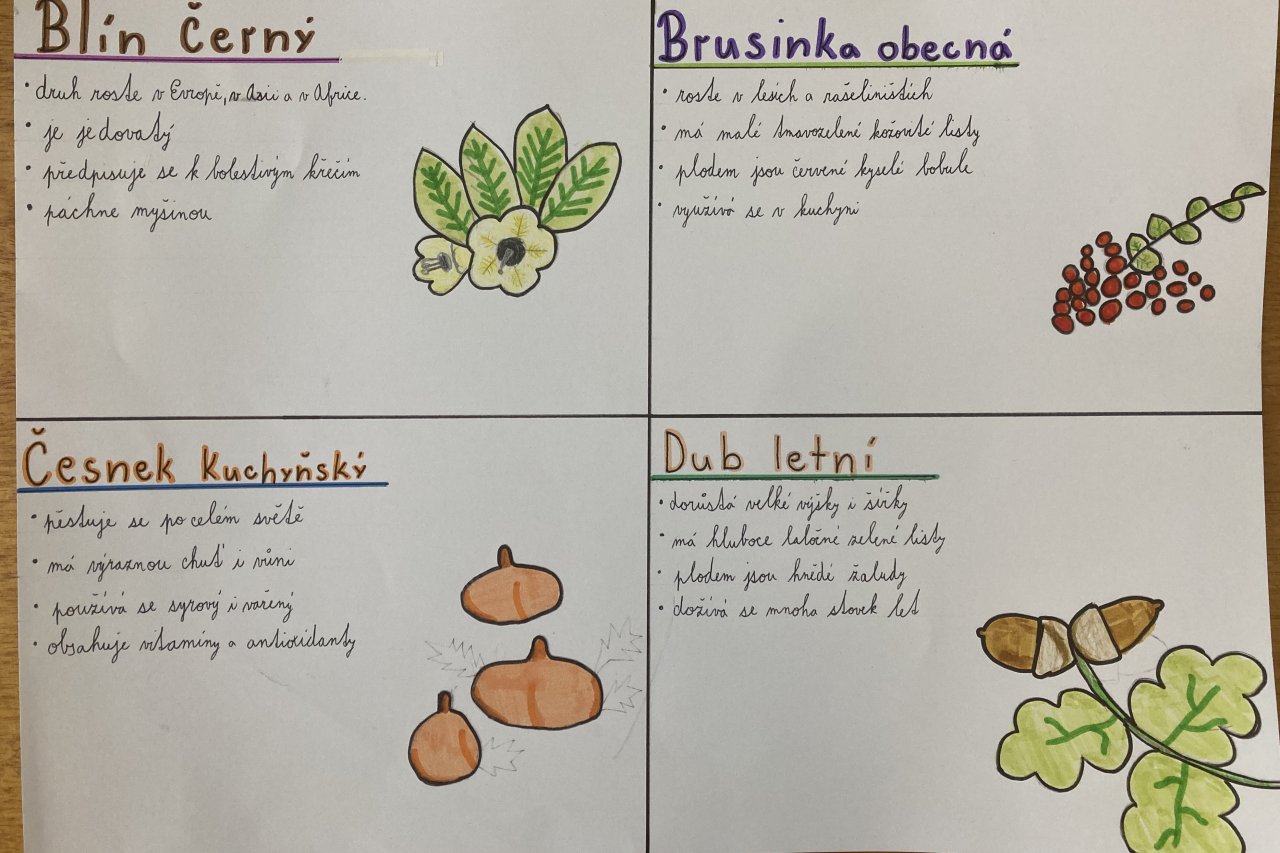 Blín Černý
• druh roste v Evropě, v Asii a v Africe.
• je jedovatý
• předpisuje se k bolestivým křečím
• páchne myšinou
Brusinka obecná
• roste v lesích a rašeliništích
• má malé tmavozelené kožovité listy
• plodem jsou červené kyselé bobule
• využívá se v kuchyni
Česnek kuchyňský
• pěstuje se po celém světě
• má výraznou chuť i vůni
• používá se syrový i vařený
• obsahuje vitamíny a antioxidanty
Dub letní
• dorůstá velké výšky i šířky
• má hluboce laločné zelené listy
• plodem jsou hnědé žaludy
• dožívá se mnoha stovek let